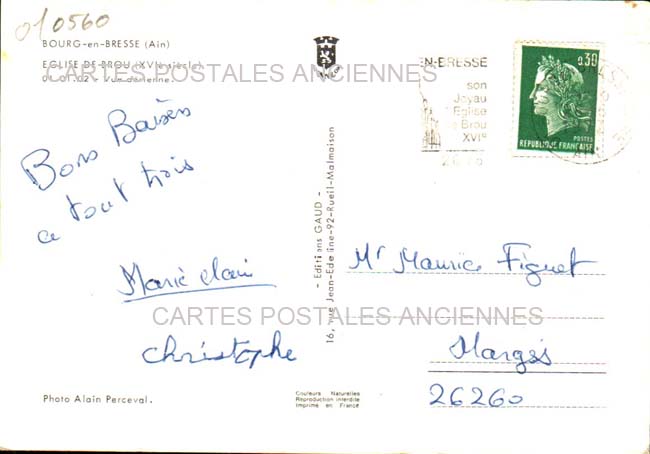 010560
BOURG-en-BRESSE (Ain)
EGLISE DE BROU (XVIe siècle)
01.01.02 - Vue aérienne.
CARTES POSTALES ANCIENNES
Bons Baisers
a tout trois
Marie clair
christophe
Photo Alain Perceval.
- Editions GAUD -
16, rue Jean-Edeline-92-Rueil-Malmaison
Couleurs Naturelles
Reproduction interdite
Imprimé en France
EN-BRESSE
son
Joyau
Eglise
Brou
XVIe
0,30
POSTES
REPUBLIQUE FRANÇAISE
AIN
Mr Maurice Figuet
CARTES POSTALES ANCIENNES
Margès
26260